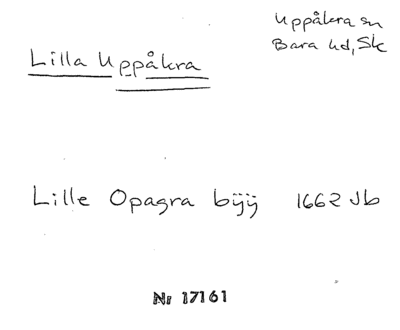 Uppåkra sn
Bara hd, Sk
Lilla Uppåkra
Lille Opagra bÿÿ 1662 Jb
Nr 17161